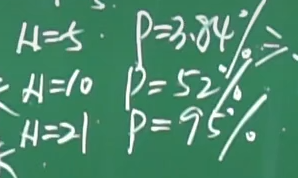 H=5. P=3.84%
H=10 P=52%
H=21 P=95%